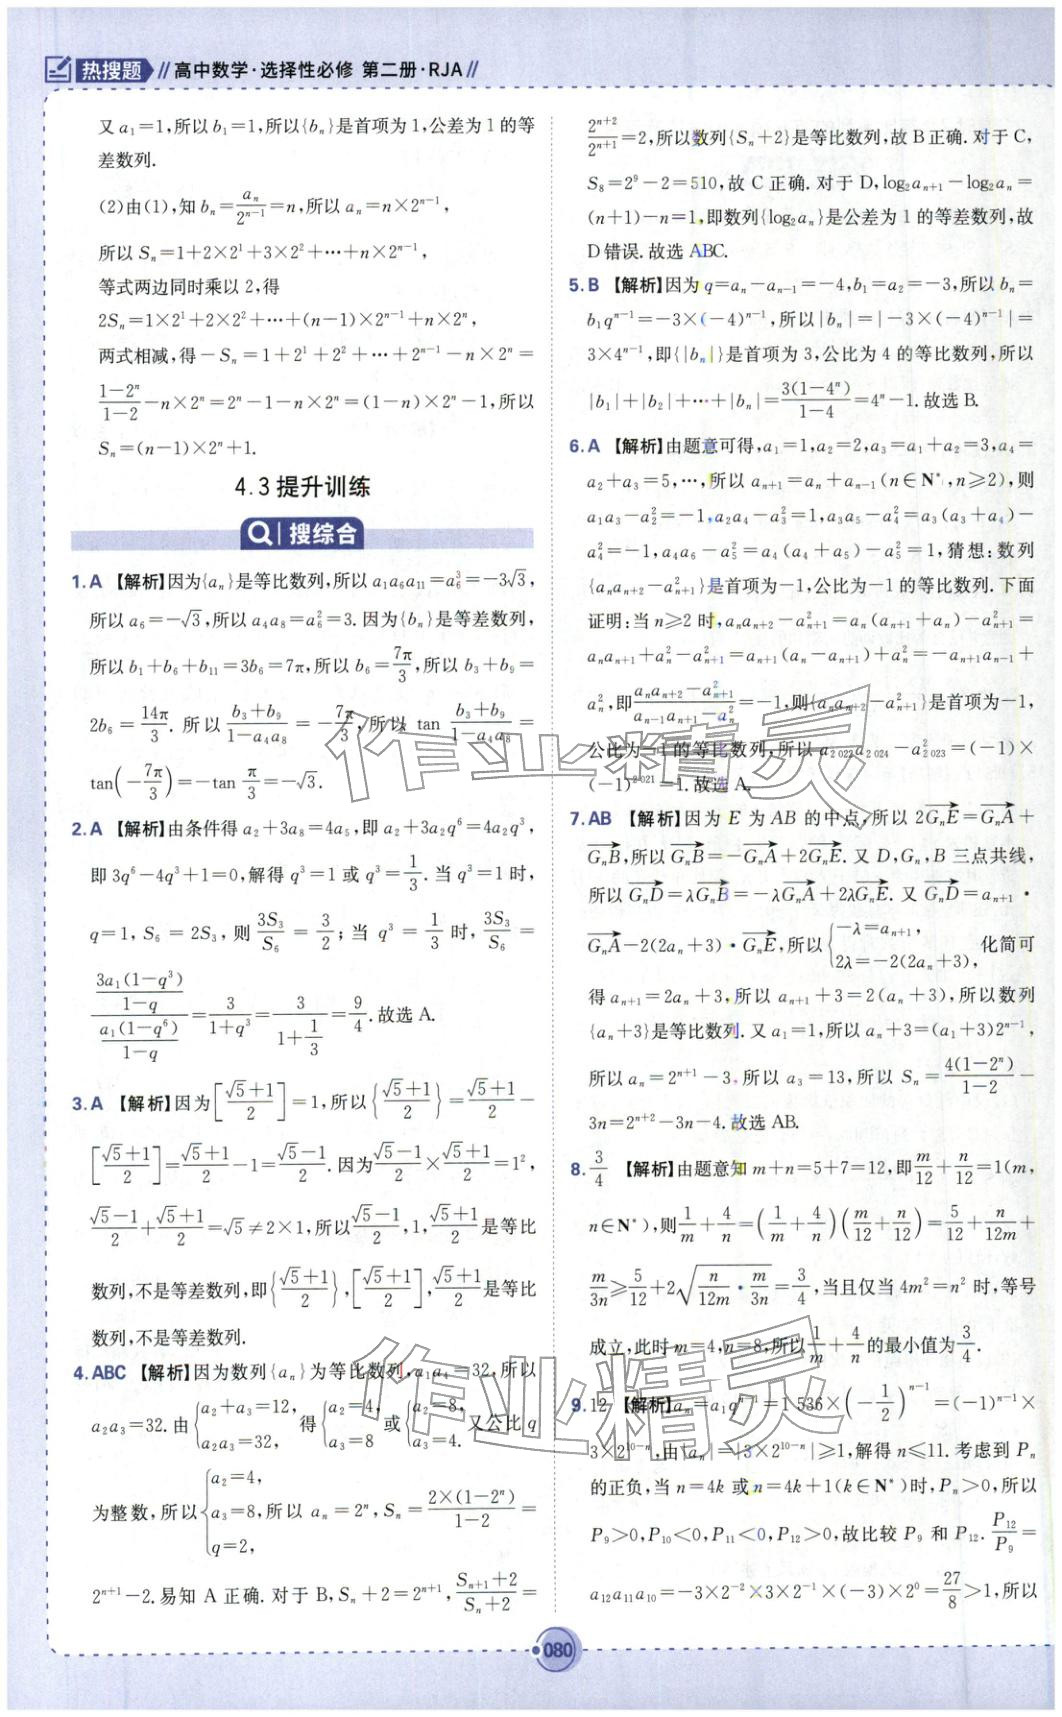 热搜题 // 高中数学·选择性必修 第二册·RJA //
又 a₁=1,所以 b₁=1,所以{bₙ}是首项为1,公差为1的等
差数列.
(2)由(1),知 bₙ=aₙ/2ⁿ⁻¹=n,所以 aₙ=n×2ⁿ⁻¹,
所以 Sₙ=1+2×2¹+3×2²+…+n×2ⁿ⁻¹,
等式两边同时乘以2,得
2Sₙ=1×2¹+2×2²+…+(n-1)×2ⁿ⁻¹+n×2ⁿ,
两式相减,得-Sₙ=1+2¹+2²+…+2ⁿ⁻¹-n×2ⁿ=
(1-2ⁿ)/(1-2)-n×2ⁿ=2ⁿ-1-n×2ⁿ=(1-n)×2ⁿ-1,所以
Sₙ=(n-1)×2ⁿ+1.
4.3提升训练
搜综合
1.A 【解析】因为{aₙ}是等比数列,所以 a₁a₆a₁₁=a₆³=-3√3,
所以 a₆=-√3,所以 a₄a₈=a₆²=3. 因为{bₙ}是等差数列,
所以 b₁+b₆+b₁₁=3b₆=7π,所以 b₆=7π/3,所以 b₃+b₉=
2b₆=14π/3. 所以 (b₃+b₉)/(1-a₄a₈)=-7π/3,所以 tan (b₃+b₉)/(1-a₄a₈)=
tan(-7π/3)=-tan π/3=-√3.
2.A 【解析】由条件得 a₂+3a₈=4a₅,即 a₂+3a₂q⁶=4a₂q³,
即 3q⁶-4q³+1=0,解得 q³=1 或 q³=1/3. 当 q³=1 时,
q=1, S₆=2S₃, 则 3S₃/S₆=3/2; 当 q³=1/3 时, 3S₃/S₆=
(3a₁(1-q³)/(1-q))/(a₁(1-q⁶)/(1-q))=3/(1+q³)=3/(1+1/3)=9/4.故选 A.
3.A 【解析】因为[(√5+1)/2]=1,所以{(√5+1)/2}=(√5+1)/2-
[(√5+1)/2]=(√5+1)/2-1=(√5-1)/2.因为(√5-1)/2×(√5+1)/2=1²,
(√5-1)/2+(√5+1)/2=√5≠2×1,所以(√5-1)/2,1,(√5+1)/2是等比
数列,不是等差数列,即{(√5+1)/2},[(√5+1)/2],(√5+1)/2是等比
数列,不是等差数列.
4.ABC 【解析】因为数列{aₙ}为等比数列,a₁a₄=32,所以
a₂a₃=32. 由{a₂+a₃=12, a₂a₃=32, 得{a₂=4, a₃=8 或{a₂=8, a₃=4. 又公比 q
为整数,所以{a₂=4, a₃=8, q=2, 所以 aₙ=2ⁿ,Sₙ=2×(1-2ⁿ)/(1-2)=
2ⁿ⁺¹-2.易知 A 正确. 对于 B,Sₙ+2=2ⁿ⁺¹,(Sₙ₊₁+2)/(Sₙ+2)=
2ⁿ⁺²/2ⁿ⁺¹=2,所以数列{Sₙ+2}是等比数列,故 B 正确. 对于 C,
S₈=2⁹-2=510,故 C 正确. 对于 D,log₂aₙ₊₁-log₂aₙ=
(n+1)-n=1,即数列{log₂aₙ}是公差为1的等差数列,故
D 错误. 故选 ABC.
5.B 【解析】因为 q=aₙ-aₙ₋₁=-4,b₁=a₂=-3,所以 bₙ=
b₁qⁿ⁻¹=-3×(-4)ⁿ⁻¹,所以|bₙ|=|-3×(-4)ⁿ⁻¹|=
3×4ⁿ⁻¹,即{|bₙ|}是首项为3,公比为4的等比数列,所以
|b₁|+|b₂|+…+|bₙ|=3(1-4ⁿ)/(1-4)=4ⁿ-1.故选 B.
6.A 【解析】由题意可得,a₁=1,a₂=2,a₃=a₁+a₂=3,a₄=
a₂+a₃=5,…,所以 aₙ₊₁=aₙ+aₙ₋₁(n∈N*,n≥2),则
a₁a₃-a₂²=-1,a₂a₄-a₃²=1,a₃a₅-a₄²=a₃(a₃+a₄)-
a₄²=-1,a₄a₆-a₅²=a₄(a₄+a₅)-a₅²=1,猜想:数列
{aₙaₙ₊₂-aₙ₊₁²}是首项为-1,公比为-1的等比数列. 下面
证明:当 n≥2 时,aₙaₙ₊₂-aₙ₊₁²=aₙ(aₙ₊₁+aₙ)-aₙ₊₁²=
aₙaₙ₊₁+aₙ²-aₙ₊₁²=aₙ₊₁(aₙ-aₙ₊₁)+aₙ²=-aₙ₊₁aₙ₋₁+
aₙ²,即(aₙaₙ₊₂-aₙ₊₁²)/(aₙ₋₁aₙ₊₁-aₙ²)=-1,则{aₙaₙ₊₂-aₙ₊₁²}是首项为-1,
公比为-1的等比数列,所以 a₂₀₂₂a₂₀₂₄-a₂₀₂₃²=(-1)×
(-1)²⁰²¹=1.故选 A.
7.AB 【解析】因为 E 为 AB 的中点,所以 2GₙE=GₙA+
GₙB,所以 GₙB=-GₙA+2GₙE. 又 D,Gₙ,B 三点共线,
所以 GₙD=λGₙB=-λGₙA+2λGₙE. 又 GₙD=aₙ₊₁·
GₙA-2(2aₙ+3)·GₙE,所以{-λ=aₙ₊₁, 2λ=-2(2aₙ+3), 化简可
得 aₙ₊₁=2aₙ+3,所以 aₙ₊₁+3=2(aₙ+3),所以数列
{aₙ+3}是等比数列. 又 a₁=1,所以 aₙ+3=(a₁+3)2ⁿ⁻¹,
所以 aₙ=2ⁿ⁺¹-3,所以 a₃=13,所以 Sₙ=4(1-2ⁿ)/(1-2)-
3n=2ⁿ⁺²-3n-4.故选 AB.
8.3/4 【解析】由题意知 m+n=5+7=12,即m/12+n/12=1(m,
n∈N*),则1/m+4/n=(1/m+4/n)(m/12+n/12)=5/12+n/12m+
m/3n≥5/12+2√(n/12m·m/3n)=3/4,当且仅当 4m²=n² 时,等号
成立,此时 m=4,n=8,所以1/m+4/n的最小值为3/4.
9.12 【解析】aₙ=a₁qⁿ⁻¹=1 536×(-1/2)ⁿ⁻¹=(-1)ⁿ⁻¹×
3×2¹⁰⁻ⁿ,由|aₙ|=|3×2¹⁰⁻ⁿ|≥1,解得 n≤11. 考虑到 Pₙ
的正负,当 n=4k 或 n=4k+1(k∈N*)时,Pₙ>0,所以
P₉>0,P₁₀<0,P₁₁<0,P₁₂>0,故比较 P₉ 和 P₁₂. P₁₂/P₉=
a₁₂a₁₁a₁₀=-3×2⁻²×3×2⁻¹×(-3)×2⁰=27/8>1,所以
080
作业精灵
作业精灵